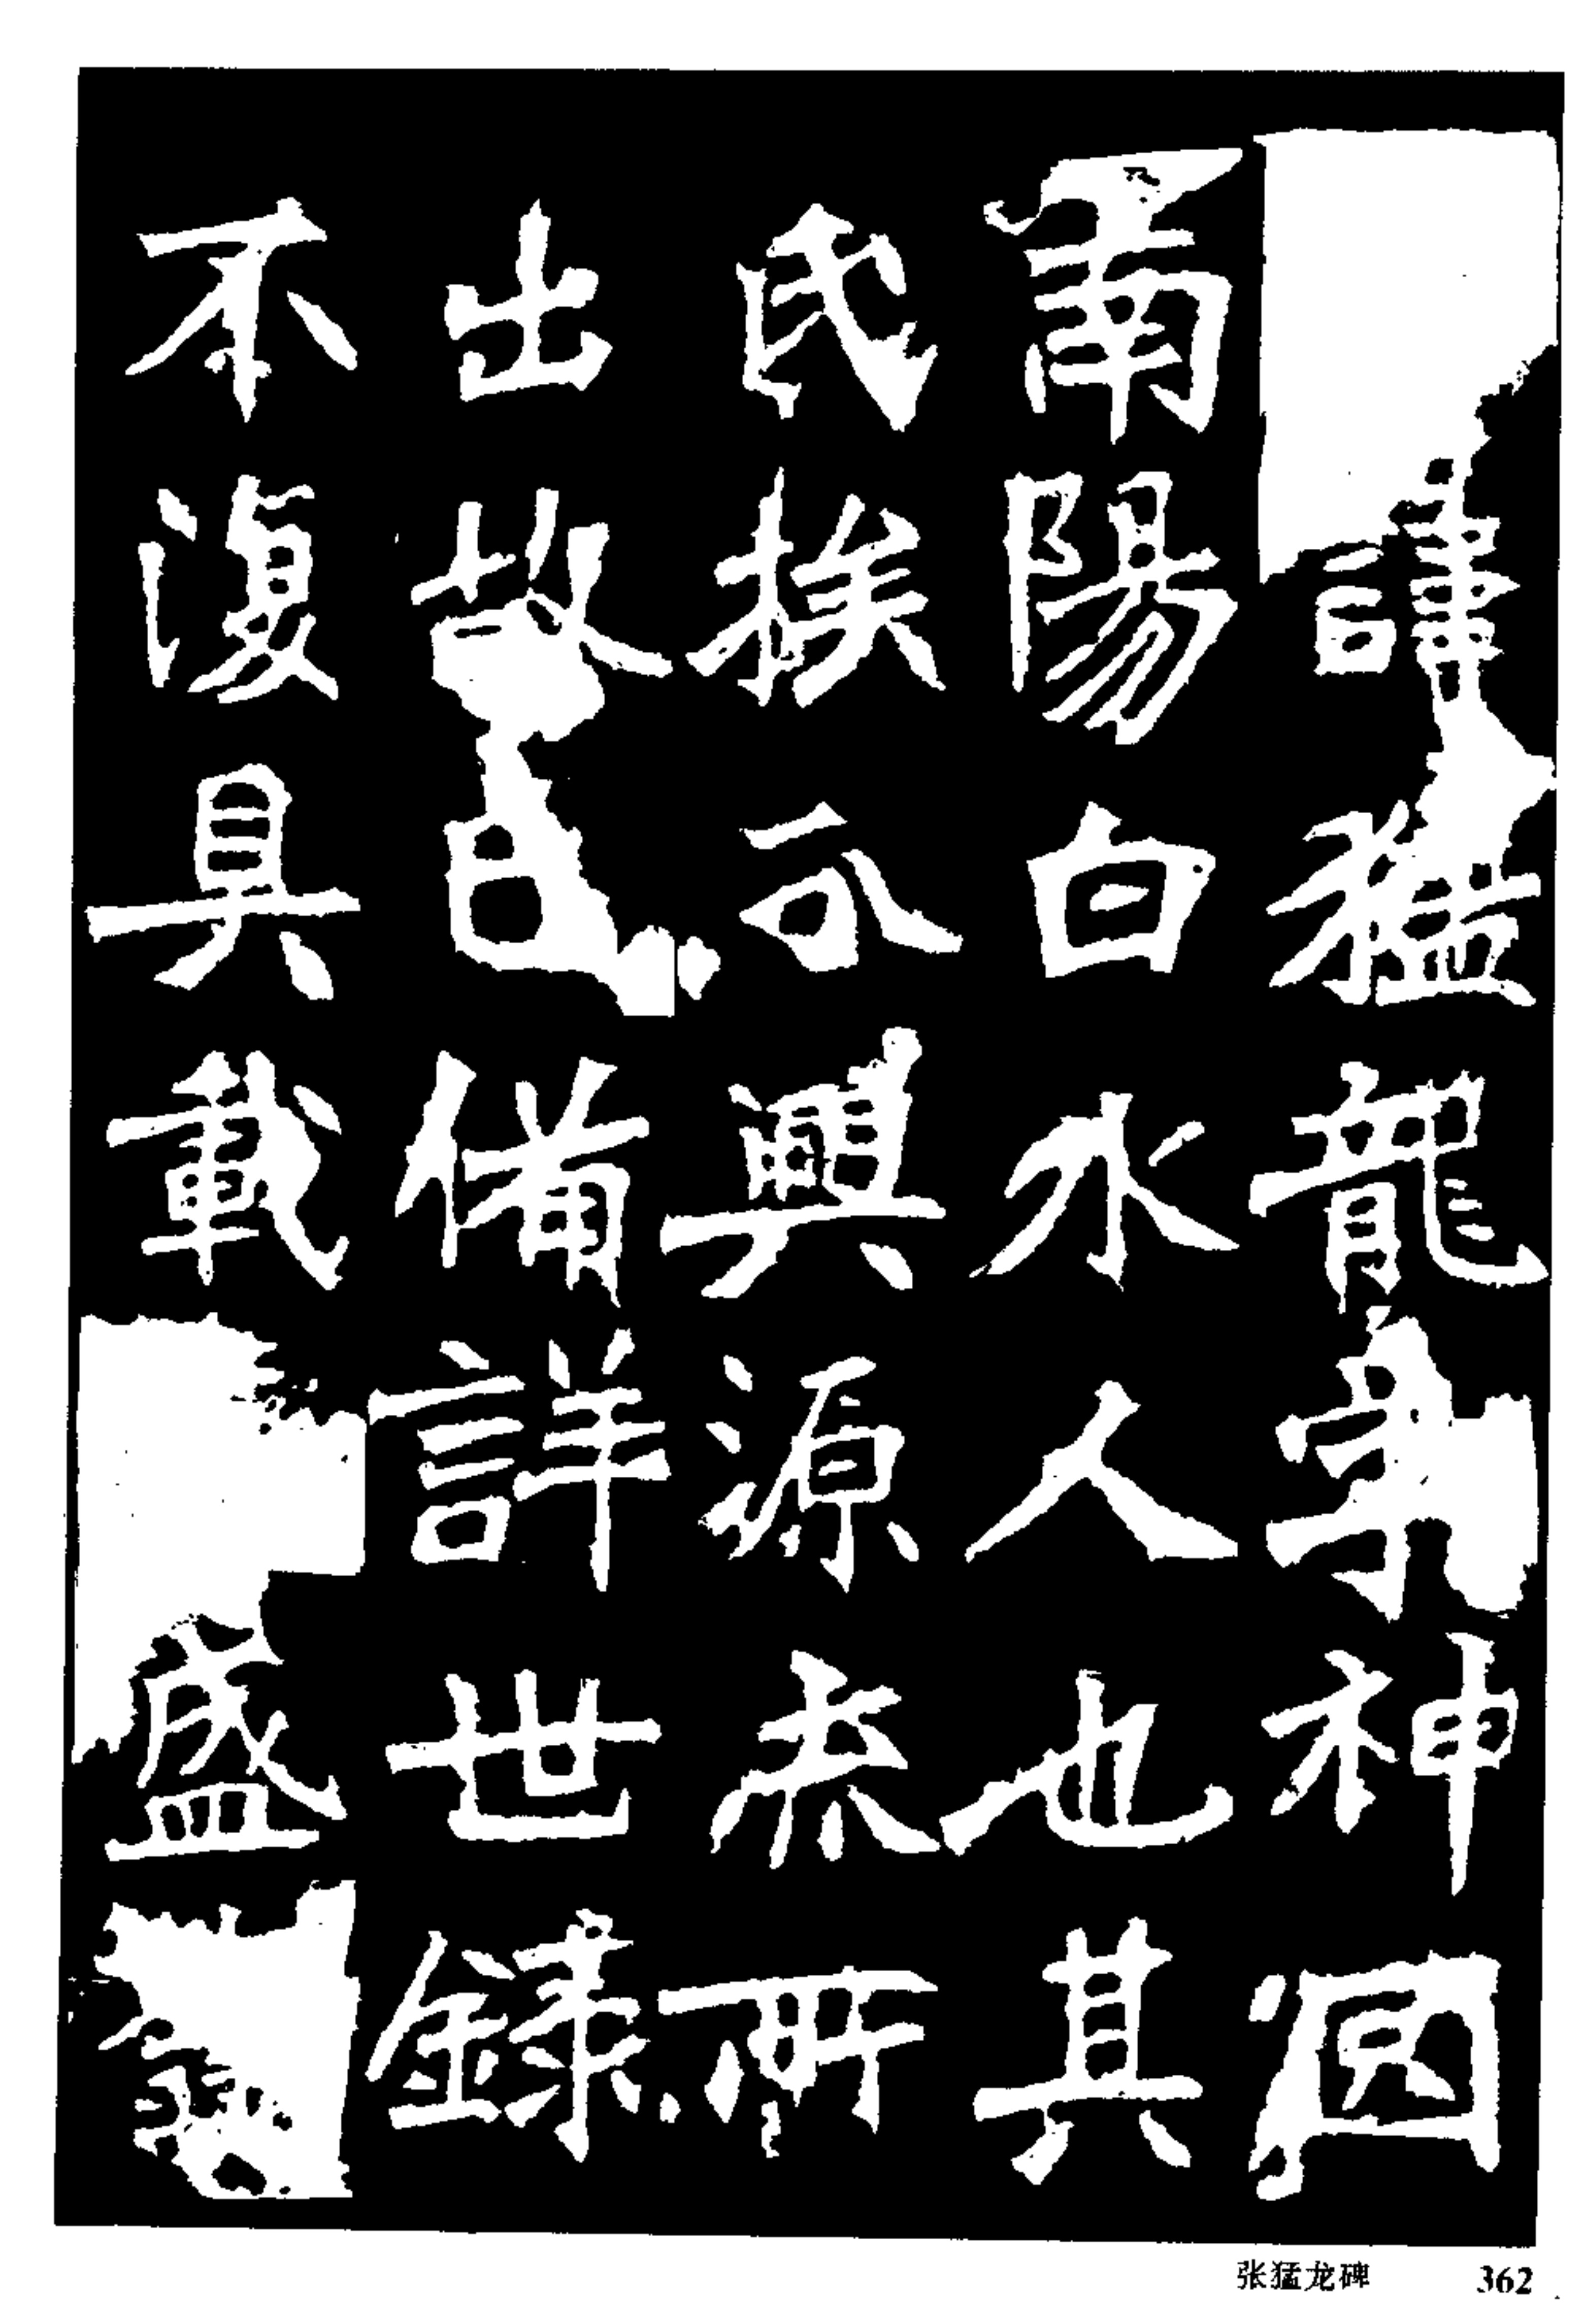 諱猛龍字神冏
南陽白水人也其
氏族分興源流所
出故已備詳世録
不復具載盛
张猛龙碑 362